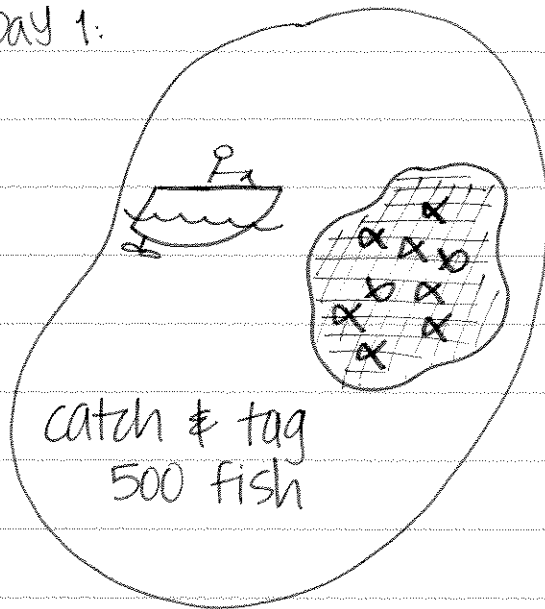 Day 1:
catch & tag
500 fish